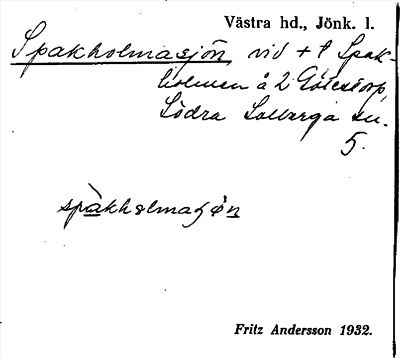 Västra hd., Jönk. l.
Spakholmasjön, vid + t Spak-
holmen å 2 Götestorp,
Södra Solberga sn.
5.
spàkholmaʃø̀n
Fritz Andersson 1932.